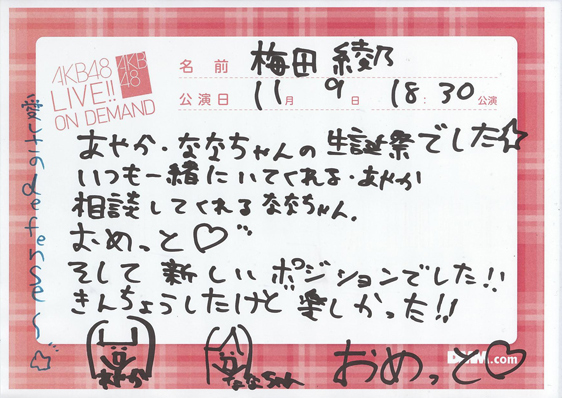 AKB48
LIVE!!
ON DEMAND
AKB
48
名前 梅田 綾乃
公演日 11月 9日 18:30 公演
あやか・ななちゃんの生誕祭でした☆
いつも一緒にいてくれる・あやか
相談してくれるななちゃん。
おめっと♡
そして 新しい ポジションでした!!
きんちょうしたけど 楽しかった!!
あやか
ななちゃん
おめっと♡
.com